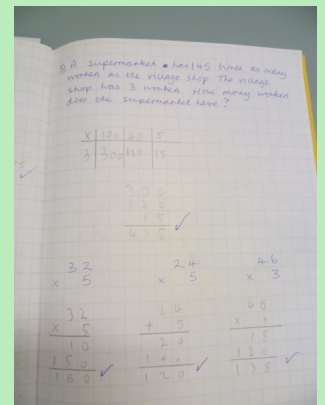 A supermarket has 145 times as many
workers as the village shop The village
shop has 3 workers. How many workers
does the supermarket have?
x 100 40 5
3 300 120 15
300
120
15
435
32
x 5
24
x 5
46
x 3
32
x 5
10
150
160
24
+ 5
20
100
120
46
x 3
18
120
138